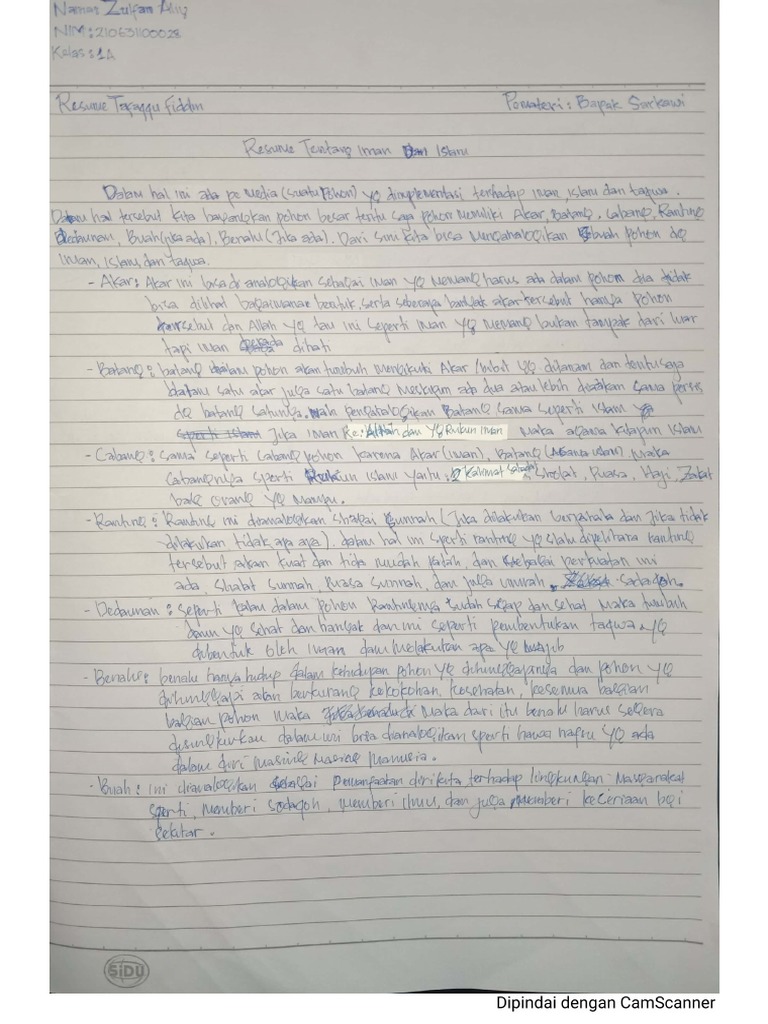 Nama: Zulfan Aliy
NIM: 210631100028
Kelas: 1A
Resume Tafaqqu Fiddin Pemateri: Bapak Sarkawi
Resume Tentang iman Dan Islam
Dalam hal ini ada pe Media (suatu pohon) yg diimplementasi terhadap iman, islam dan taqwa.
Dalam hal tersebut kita bayangkan pohon besar tentu saja pohon memiliki Akar, Batang, Cabang, Ranting
Dedaunan, Buah (jika ada), Benalu (Jika ada). Dari sini kita bisa Menganalogikan Sebuah pohon dg
iman, islam dan taqwa.
- Akar: Akar ini bisa di analogikan sebagai iman yg Memang harus ada dalam pohon dia tidak
bisa dilihat bagaimana bentuk, serta seberapa banyak akar tersebut hanya pohon
tersebut dan Allah yg tau ini seperti iman yg Memang bukan tampak dari luar
tapi iman dihati
- Batang: batang dalam pohon akan tumbuh mengikuti Akar / bibit yg ditanam dan tentu saja
dalam satu akar juga satu batang Meskipun ada dua atau lebih sama persis
dg batang satunya. Nah penganalogikan Batang sama seperti islam
Jika iman Ke: Allah dan yg Rukun iman Maka agama kitapun islam
- Cabang: sama seperti cabang pohon karena Akar (iman), Batang (Agama islam) Maka
Cabangnya sperti Rukun islam yaitu. 2 Kalimat Sahadat, Sholat, Puasa, Haji, Zakat
bagi orang yg Mampu.
- Ranting: Ranting ini dianalogikan sbagai Sunnah (Jika dilakukan berpahala dan Jika tidak
dilakukan tidak apa apa). dalam hal ini sperti ranting yg slalu dipelihara ranting
tersebut akan kuat dan tida mudah patah, dan sebagai perbuatan ini
ada, Shalat sunnah, Puasa Sunnah, dan juga umrah, sadaqoh.
- Dedaunan: seperti dalam pohon Rantingnya sudah siap dan sehat Maka tumbuh
daun yg sehat dan banyak dan ini seperti pembentukan taqwa yg
dibentuk oleh iman dan Melakukan apa yg wajib
- Benalu: benalu hanya hidup dalam kehidupan pohon yg dihinggapinya dan pohon yg
dihinggapi akan berkurang kekokohan, kesehatan, kesemua bagian
bagian pohon Maka Maka dari itu benalu harus segera
disingkirkan dalam ini bisa dianalogikan sperti hawa nafsu yg ada
dalam diri masing masing Manusia.
- Buah: ini dianalogikan sebagai Pemanfaatan diri kita terhadap lingkungan Masyarakat
sperti, memberi sodaqoh, memberi ilmu, dan juga Memberi keceriaan bgi
sekitar.
SiDU
Dipindai dengan CamScanner